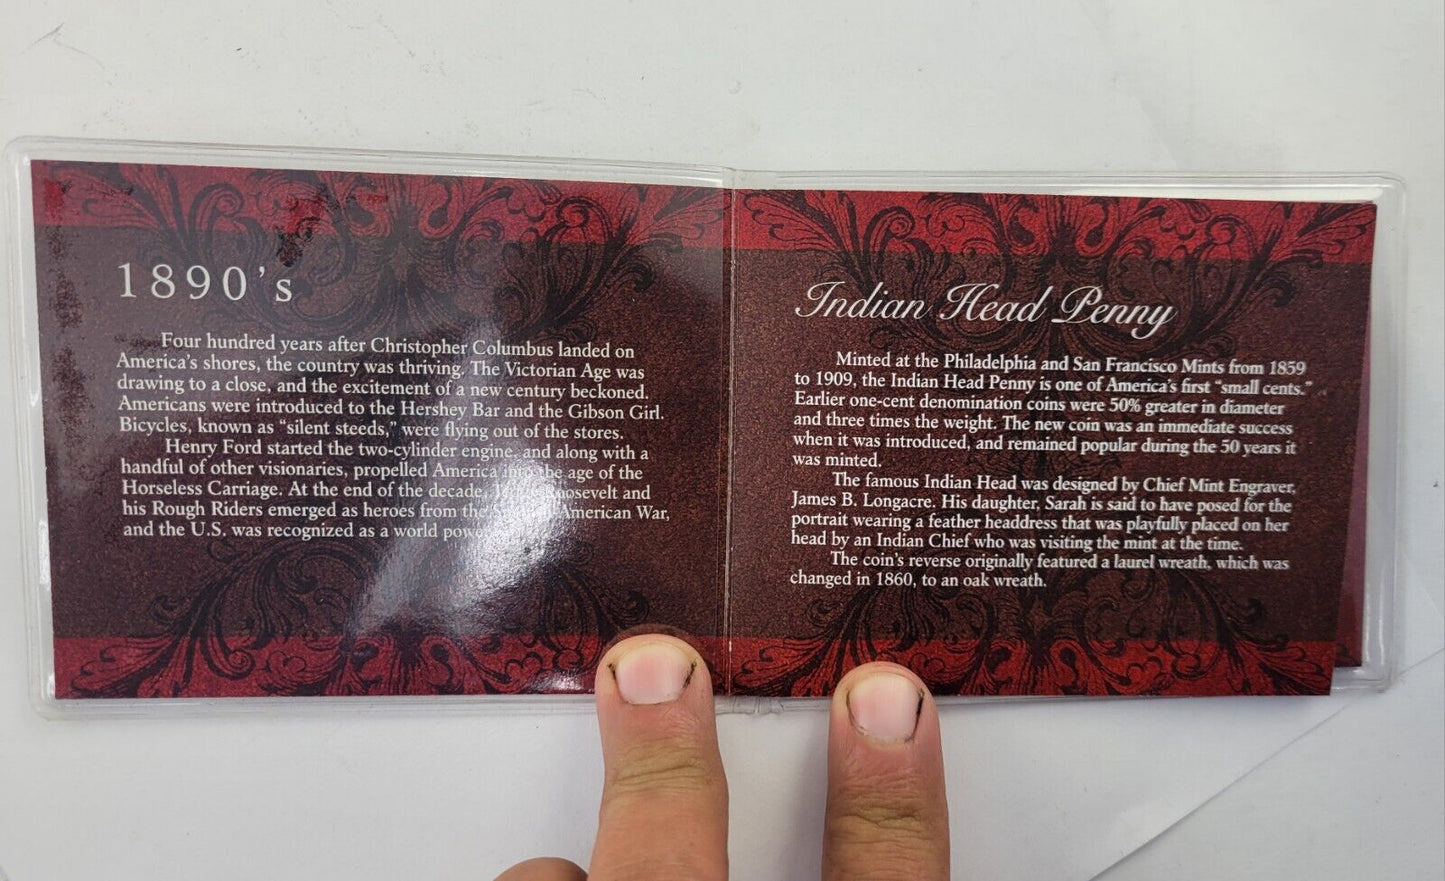 1890's
Four hundred years after Christopher Columbus landed on
America's shores, the country was thriving. The Victorian Age was
drawing to a close, and the excitement of a new century beckoned.
Americans were introduced to the Hershey Bar and the Gibson Girl.
Bicycles, known as "silent steeds," were flying out of the stores.
Henry Ford started the two-cylinder engine, and along with a
handful of other visionaries, propelled America into the age of the
Horseless Carriage. At the end of the decade, Roosevelt and
his Rough Riders emerged as heroes from the Spanish American War,
and the U.S. was recognized as a world power
Indian Head Penny
Minted at the Philadelphia and San Francisco Mints from 1859
to 1909, the Indian Head Penny is one of America's first "small cents."
Earlier one-cent denomination coins were 50% greater in diameter
and three times the weight. The new coin was an immediate success
when it was introduced, and remained popular during the 50 years it
was minted.
The famous Indian Head was designed by Chief Mint Engraver,
James B. Longacre. His daughter, Sarah is said to have posed for the
portrait wearing a feather headdress that was playfully placed on her
head by an Indian Chief who was visiting the mint at the time.
The coin's reverse originally featured a laurel wreath, which was
changed in 1860, to an oak wreath.